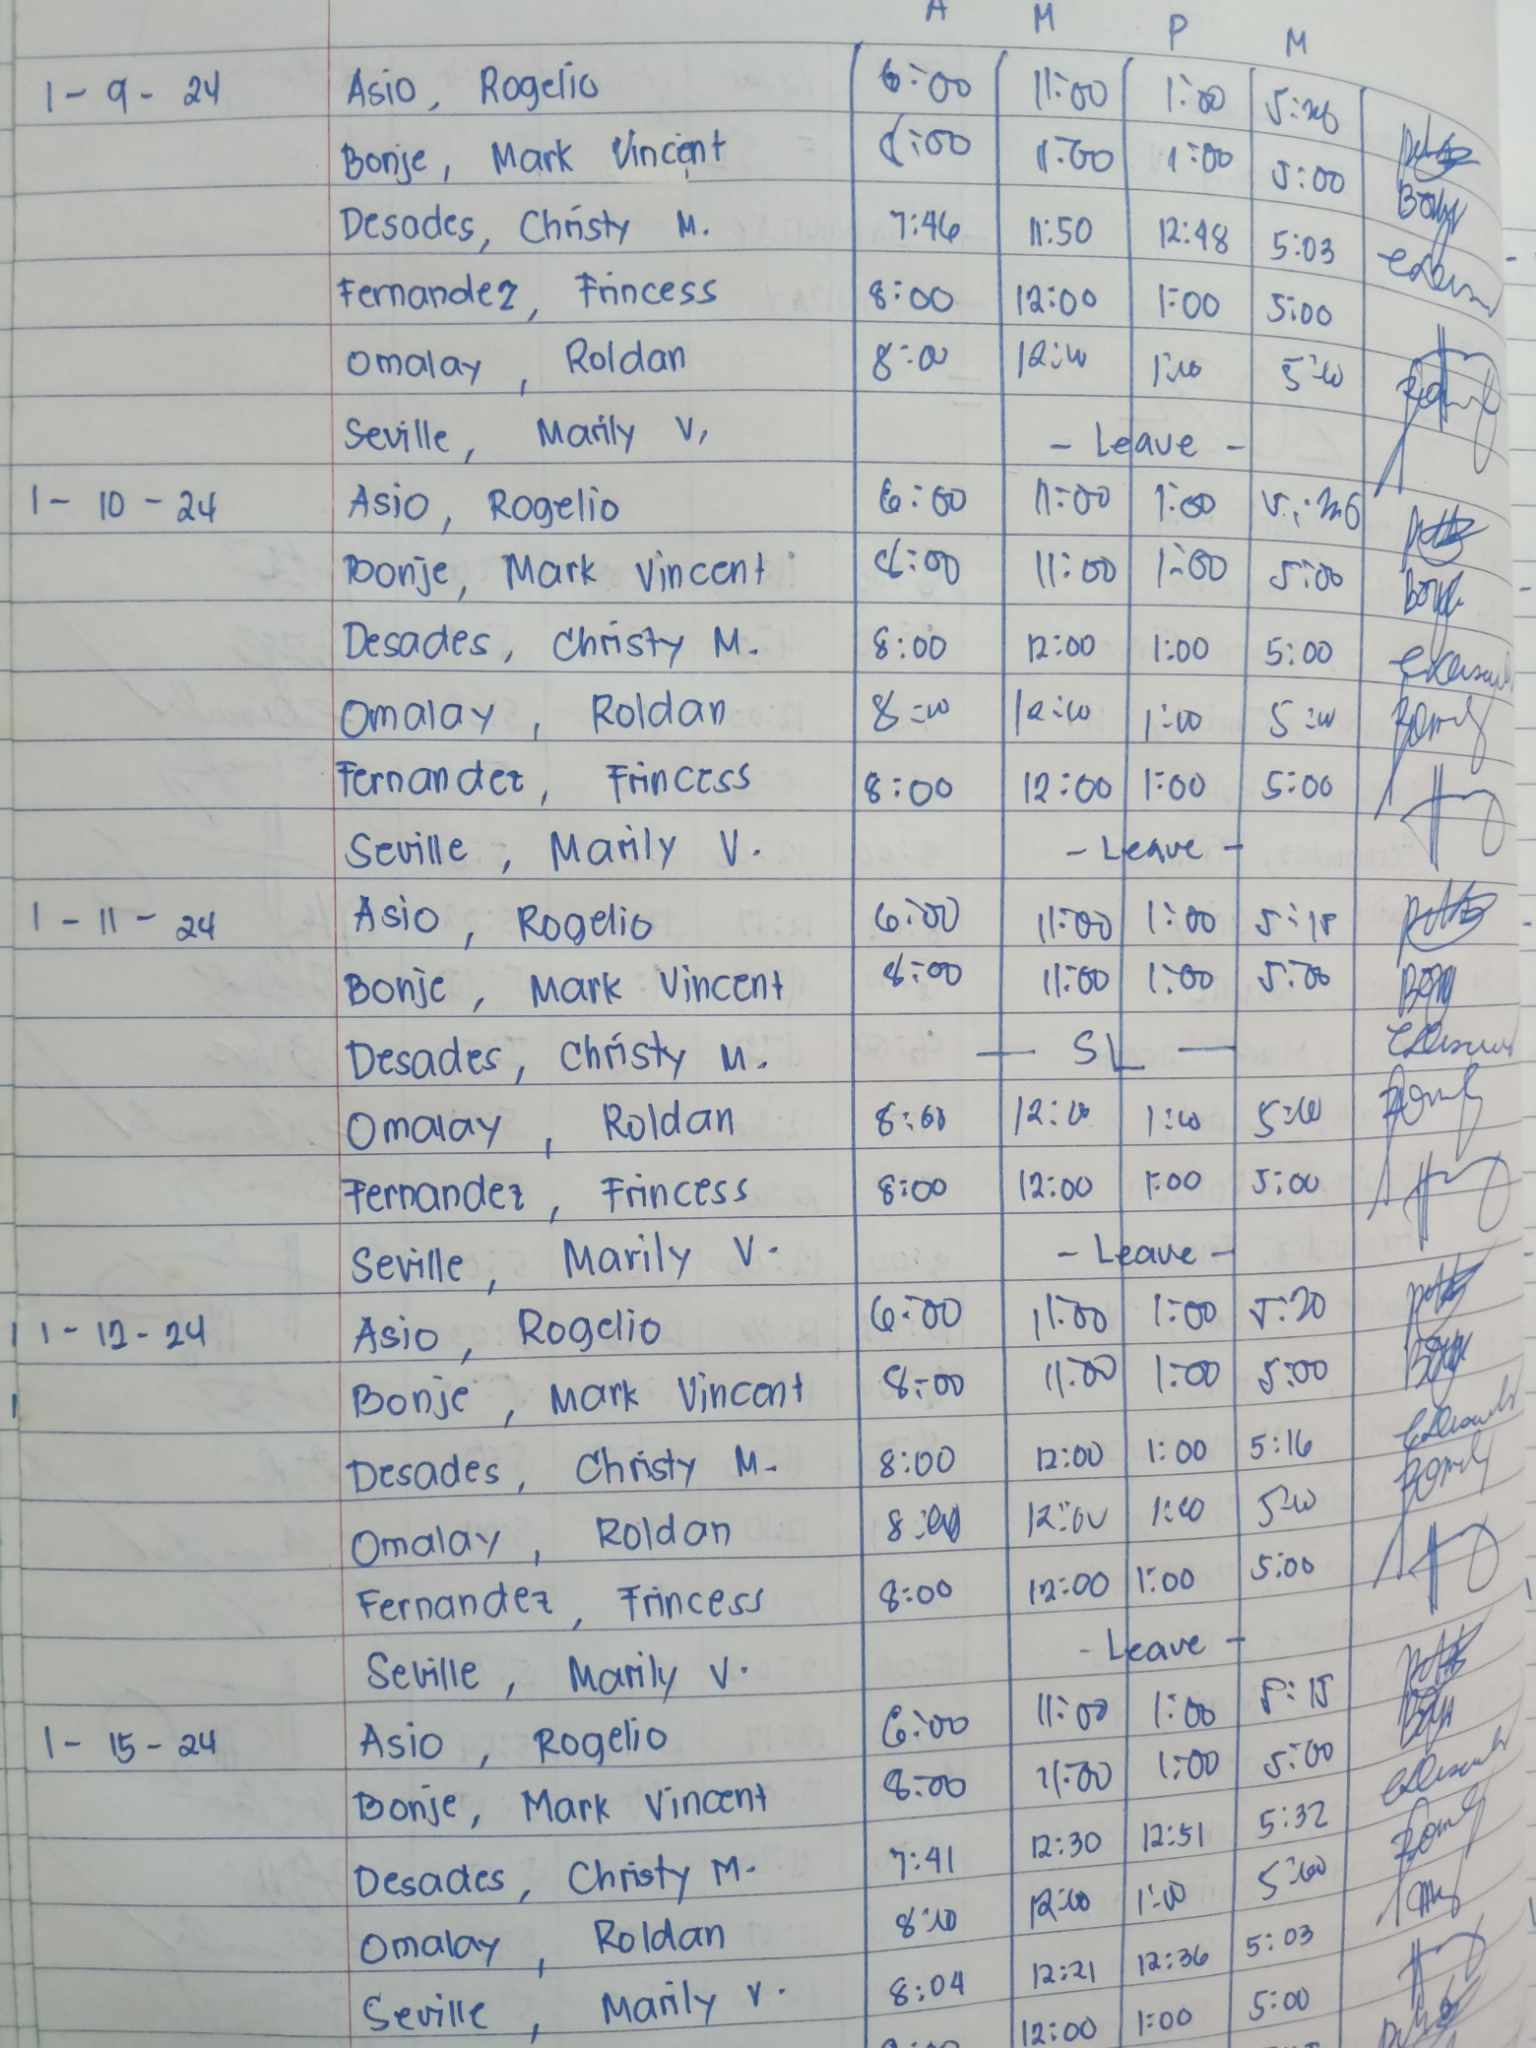 A M P M
1-9-24 Asio, Rogelio 6:00 11:00 1:00
Bonje, Mark Vincent 8:00 11:00 1:00 5:00
Desades, Christy M. 7:46 11:50 12:48 5:03
Fernandez, Frincess 8:00 12:00 1:00 5:00
Omalay, Roldan 8:00 12:00 1:00 5:00
Seville, Marily V. - Leave -
1-10-24 Asio, Rogelio 6:00 11:00 1:00
Bonje, Mark Vincent 8:00 11:00 1:00 5:00
Desades, Christy M. 8:00 12:00 1:00 5:00
Omalay, Roldan 8:00 12:00 1:00 5:00
Fernandez, Frincess 8:00 12:00 1:00 5:00
Seville, Marily V. - Leave -
1-11-24 Asio, Rogelio 6:00 11:00 1:00 5:15
Bonje, Mark Vincent 8:00 11:00 1:00 5:00
Desades, Christy M. — SL —
Omalay, Roldan 8:00 12:00 1:00 5:00
Fernandez, Frincess 8:00 12:00 1:00 5:00
Seville, Marily V. - Leave -
1-12-24 Asio, Rogelio 6:00 11:00 1:00 5:20
Bonje, Mark Vincent 8:00 11:00 1:00 5:00
Desades, Christy M. 8:00 12:00 1:00 5:16
Omalay, Roldan 8:00 12:00 1:00 5:00
Fernandez, Frincess 8:00 12:00 1:00 5:00
Seville, Marily V. - Leave -
1-15-24 Asio, Rogelio 6:00 11:00 1:00 5:15
Bonje, Mark Vincent 8:00 11:00 1:00 5:00
Desades, Christy M. 7:41 12:30 12:51 5:32
Omalay, Roldan 8:00 12:00 1:00 5:00
Seville, Marily V. 8:04 12:21 12:36 5:03
12:00 1:00 5:00